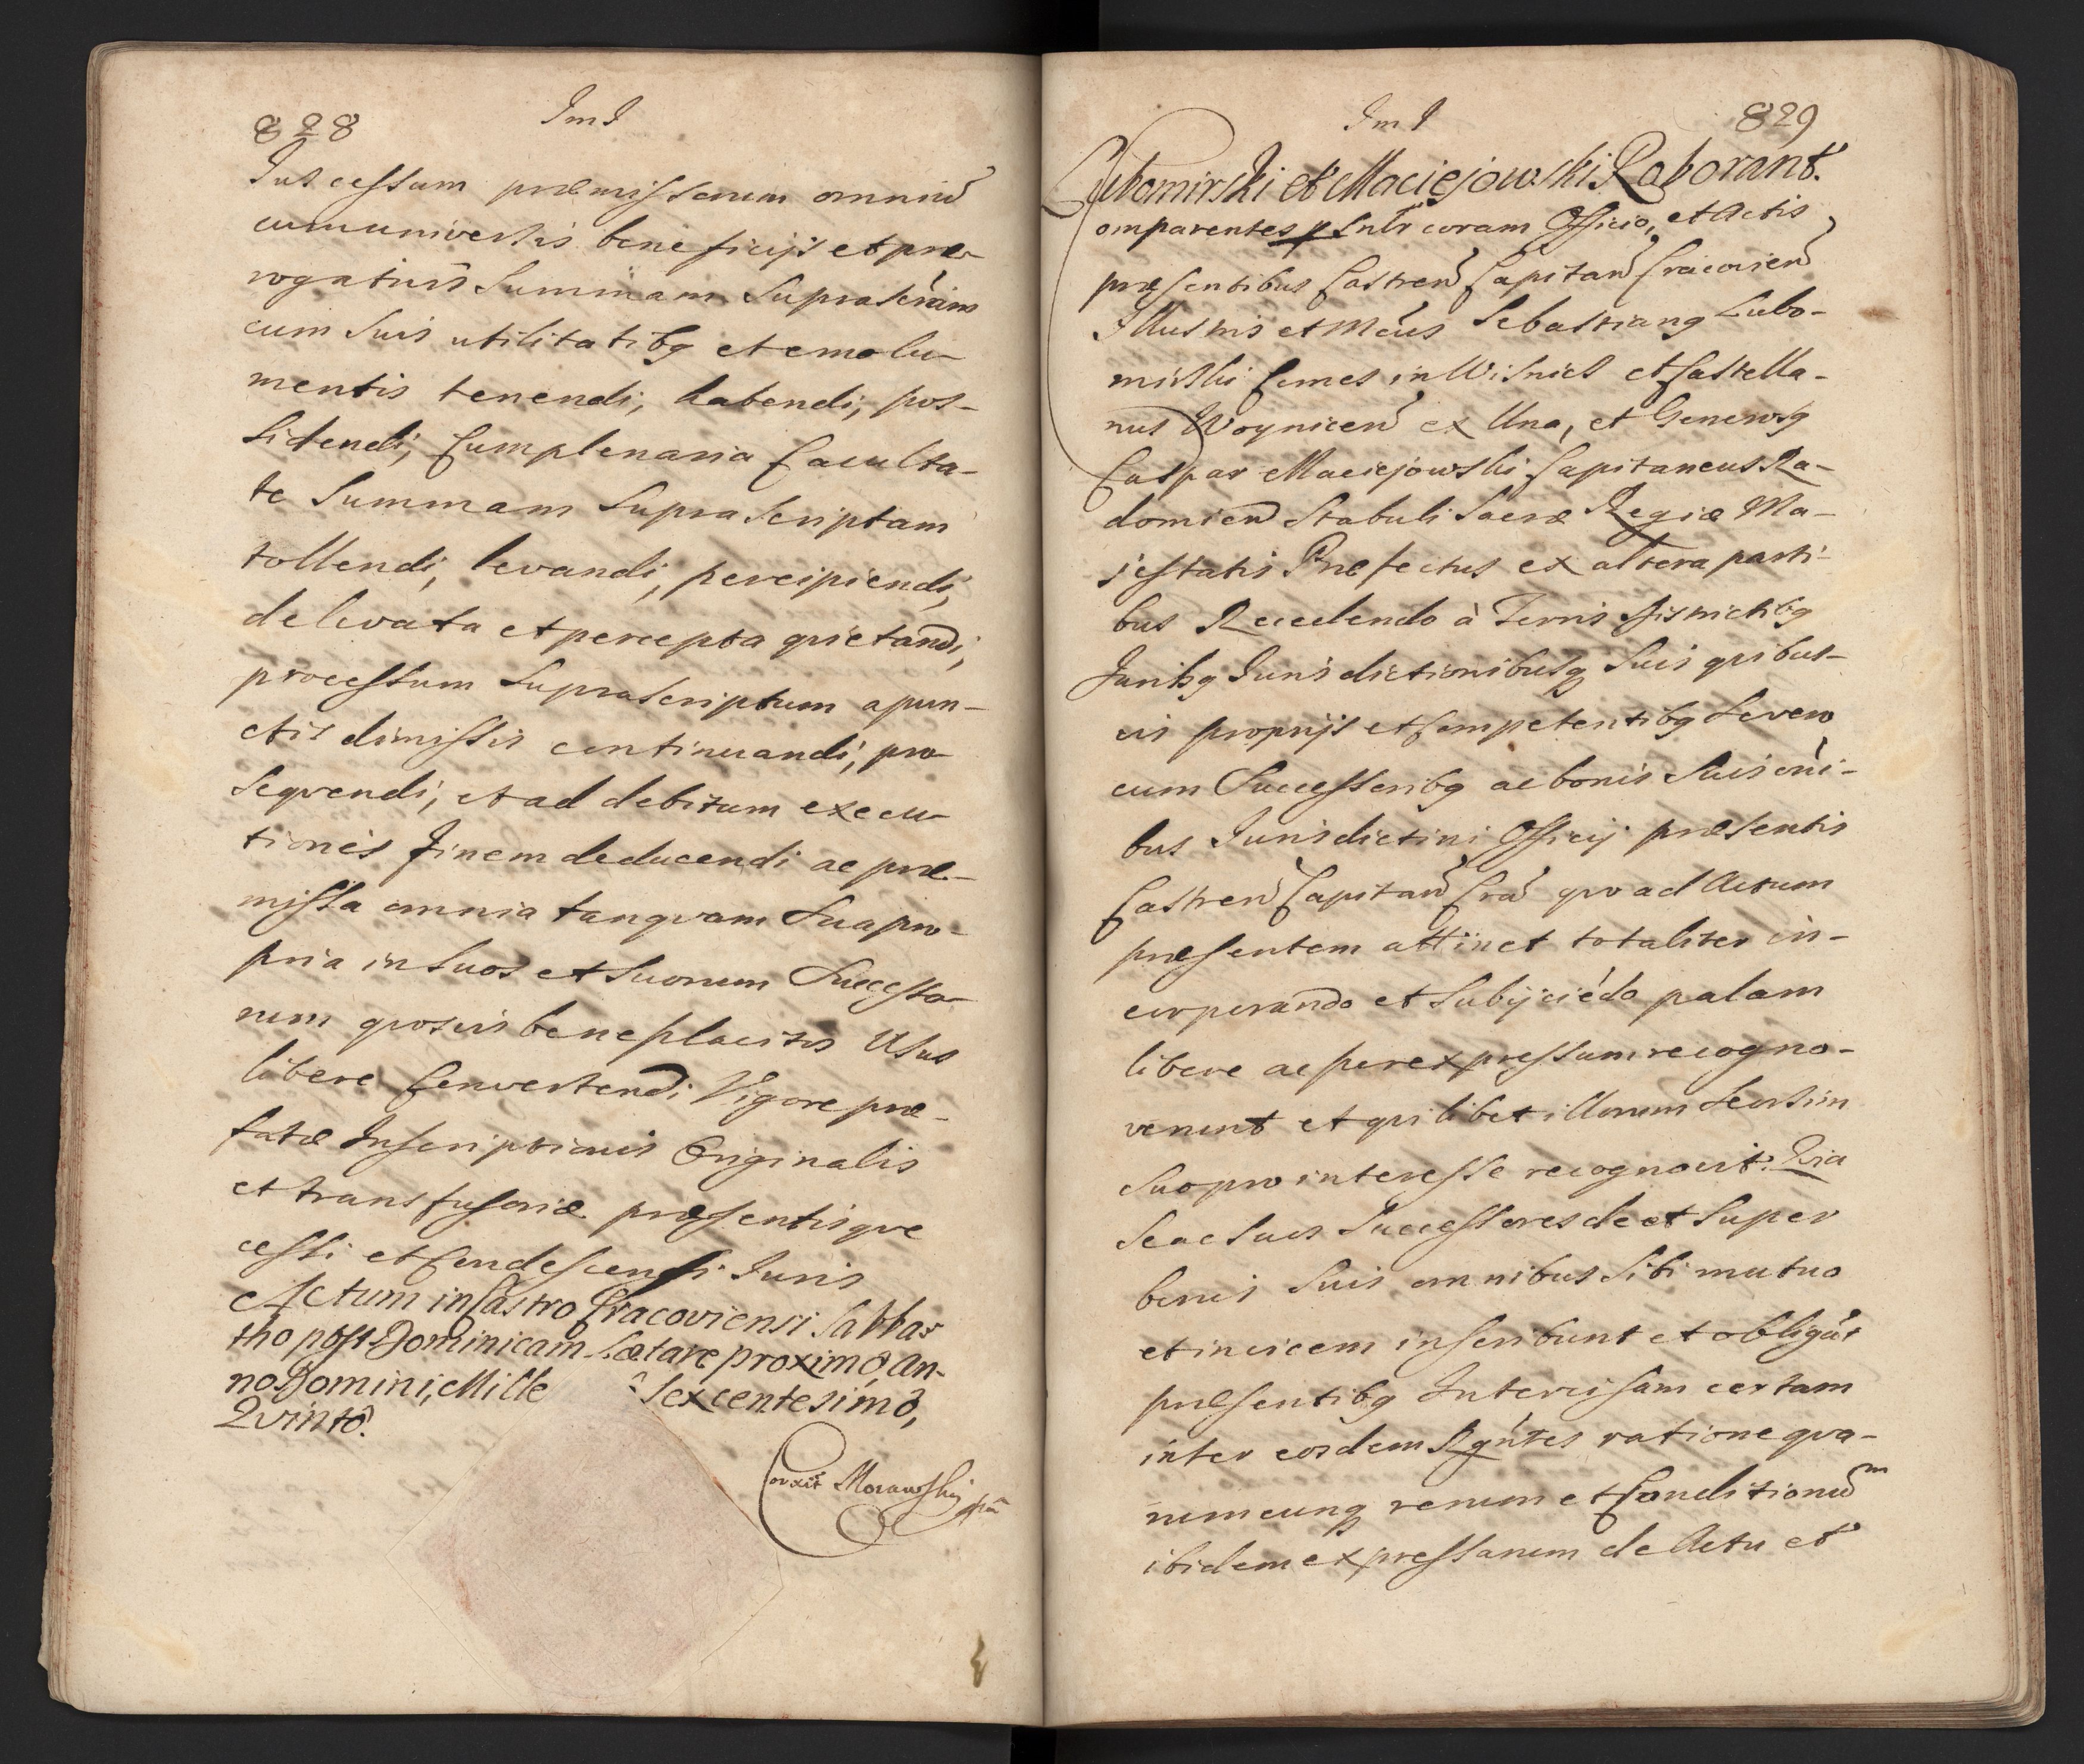 828
ImI
Jus cessum præmissorum omniũ
cum universis beneficijs et præ-
rogativis Summam Suprascriam
cum suis utilitatibq et emolu-
mentis tenendi, habendi, pos-
sidendi, Cum plenaria Faculta-
te Summam Suprascriptam
tollendi, levandi, percipiendi,
de levata et percepta qvietandi,
processum Suprascriptum a pun-
ctis dimissis continuandi, pro
seqvendi, et ad debitum execu-
tionis Finem deducendi ac præ-
missa omnia tanqvam Sua pro-
pria in Suos et Suorum Successo-
rum qvosvis beneplacitos Usus
libere Convertendi Vigore præ-
fatæ Inscriptionis Originalis
et transfusoriæ præsentisqve
cessi et Condescensi Juris
Actum in Castro Cracoviensi Sabba-
tho post Dominicam Lætare proximo, An-
no Domini, Mille Sexcentesimo,
Qvinto.
Corxit Morawski mpa
ImI
829
Lubomirski et Maciejowski Roborant.
omparentes psnlr coram Officio, et Actis
præsentibus Castren Capitan Cracovien
Illustris et Mcus Sebastianq Lubo-
mirski Comes in Wisnicz et Castella-
nus Woynicen ex Una, et Generosq
Caspar Maciejowski Capitaneus Ra-
domien Stabuli Sacræ Regiæ Ma-
jestatis Præfectus ex altera parti-
bus Recedendo à Terris Districtibq
Juribq Jurisdictionibusq Suis qvibus-
vis proprijs et Competentibq Se vero
cum Successoribq ac bonis Suis oni-
bus Jurisdictini Officij præsentis
Castren Capitan Cra qvo ad Actum
præsentem attinet totaliter in-
corporando et Subijciedo palam
libere ac per expressum recogno-
verunt et qvilibet illorum Seorsim
suo pro interesse recognovit: Qvia
Se ac Suos Successores de et Super
bonis Suis omnibus Sibi mutuo
et invicem inscribunt et obligat
præsentibq Intercisam certam
inter eosdem Rgntes ratione qva-
rumcunq rerum et Conditionũ
ibidem expressarum de Actu et